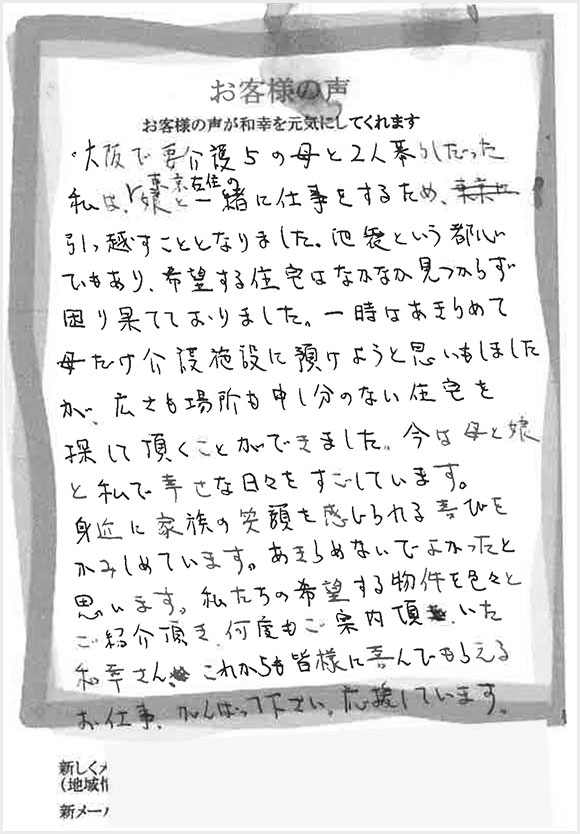 お客様の声
お客様の声が和幸を元気にしてくれます
・大阪で要介護5の母と2人暮らしだった
東京在住の
私は、娘と一緒に仕事をするため、東京に
引っ越すこととなりました。池袋という都心
でもあり、希望する住宅はなかなか見つからず
困り果てておりました。一時はあきらめて
母だけ介護施設に預けようと思いもしました
が、広さも場所も申し分のない住宅を
探して頂くことができました。今は母と娘
と私で幸せな日々をすごしています。
身近に家族の笑顔を感じられる喜びを
かみしめています。あきらめないでよかったと
思います。私たちの希望する物件を色々と
ご紹介頂き、何度もご案内頂いた
和幸さん、これからも皆様に喜んでもらえる
お仕事、がんばって下さい。応援しています。
新しくメ
（地域情
新メール